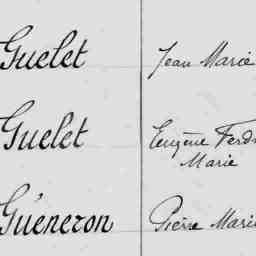 Guelet Jean Marie
Guelet Eugène Ferd
Marie
Guéneron Pierre Marie